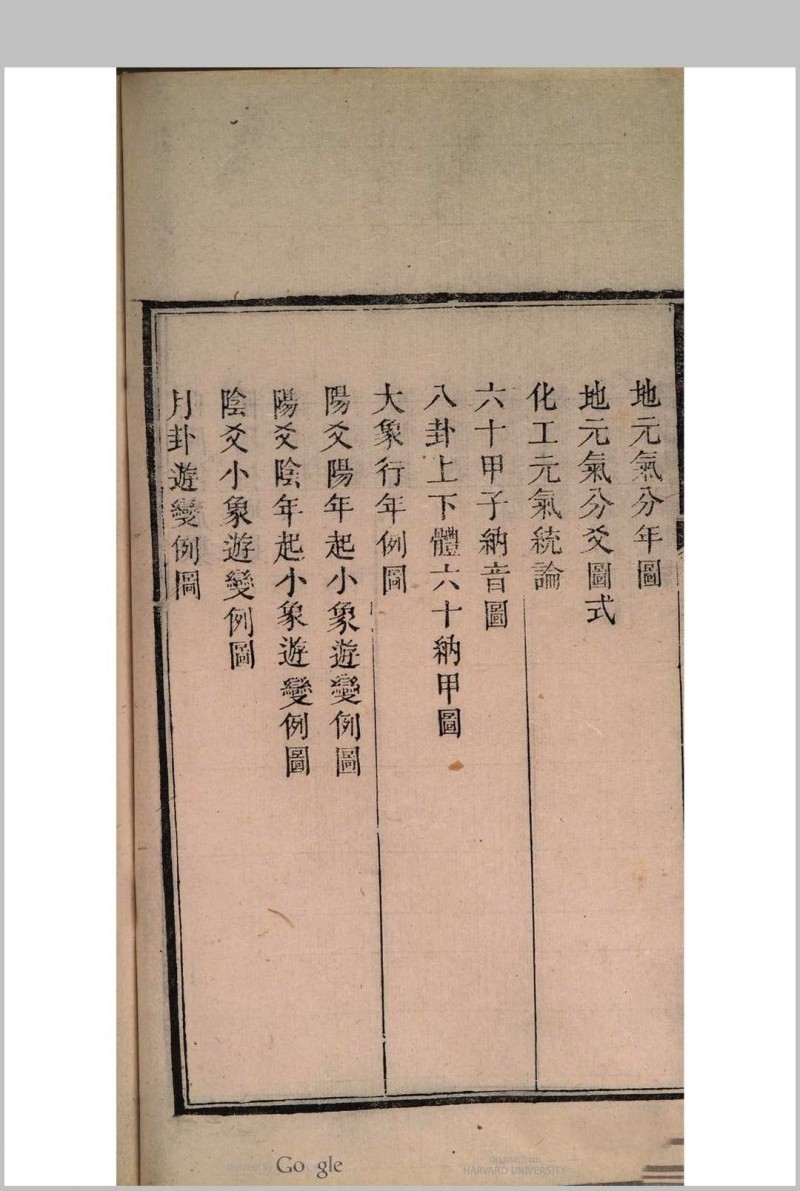 地元氣分年圖
地元氣分爻圖式
化工元氣統論
六十甲子納音圖
八卦上下體六十納甲圖
大象行年例圖
陽爻陽年起小象遊變例圖
陽爻陰年起小象遊變例圖
陰爻小象遊變例圖
月卦遊變例圖
Google
Original from
HARVARD UNIVERSITY